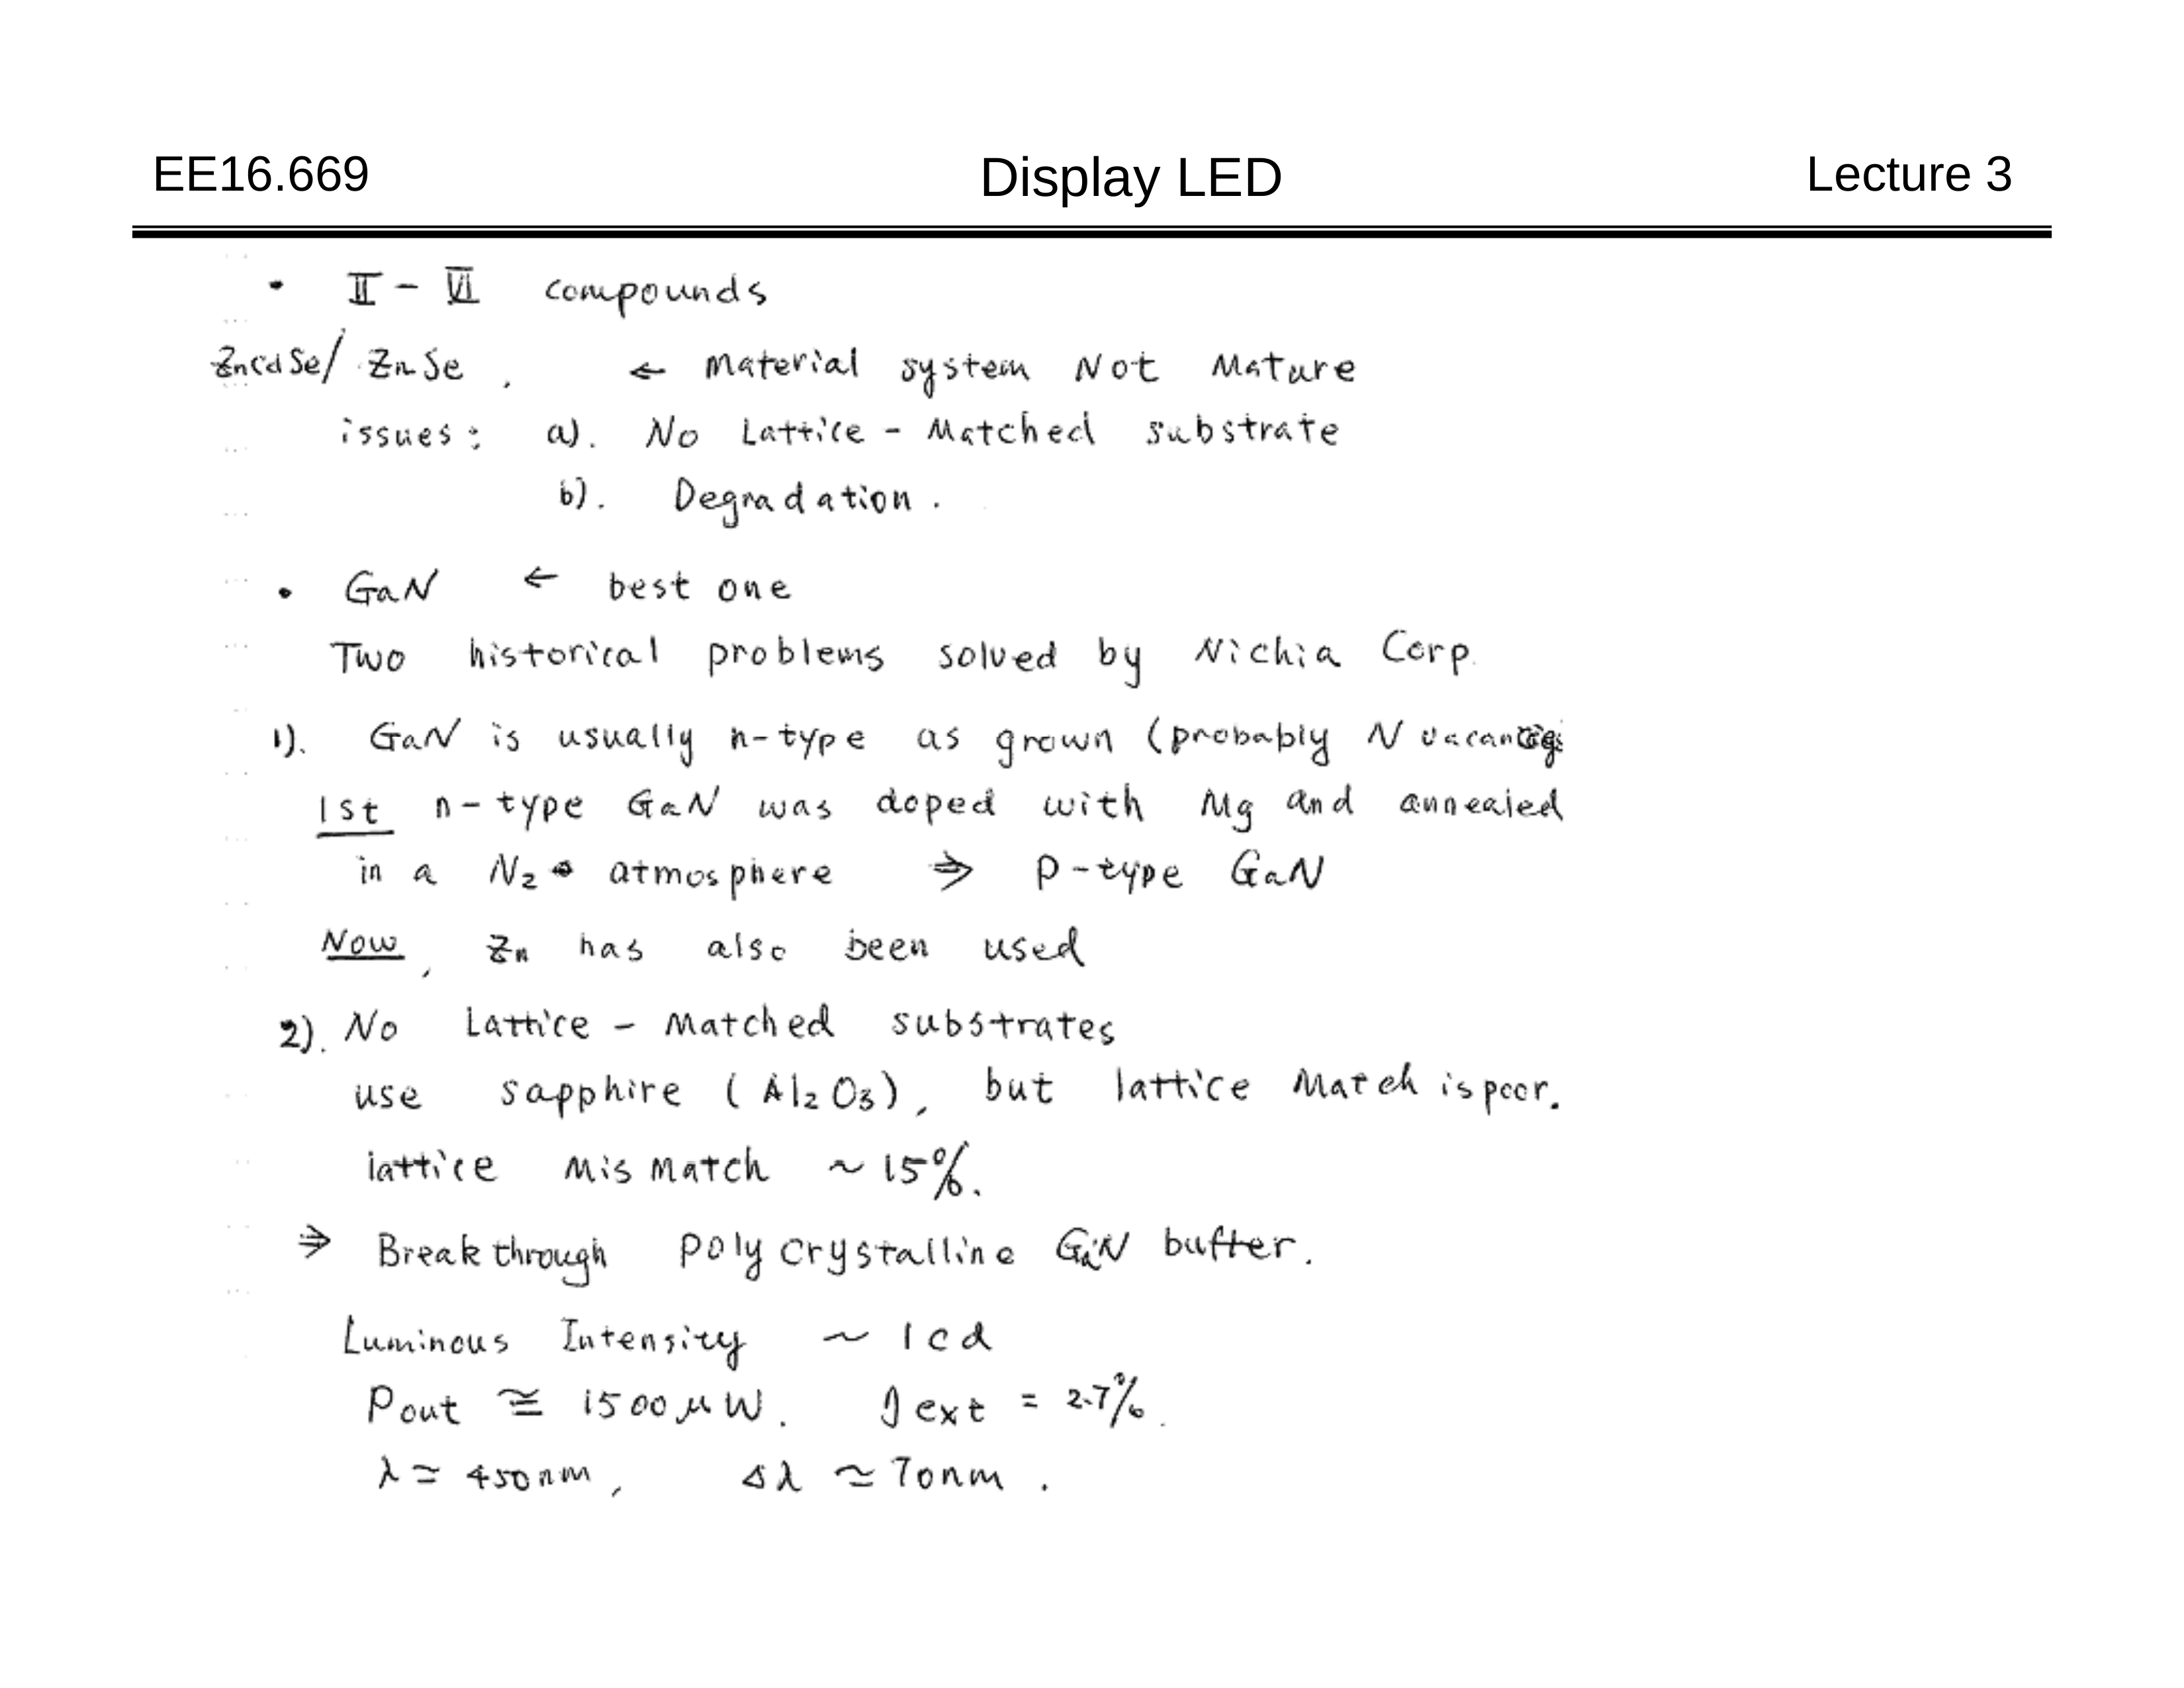 EE16.669 Display LED Lecture 3
• II - VI compounds
ZnCdSe/ ZnSe , ← Material system Not Mature
issues: a). No Lattice - Matched substrate
b). Degradation.
• GaN ← best one
Two historical problems solved by Nichia Corp.
1). GaN is usually n-type as grown (probably N
1st n-type GaN was doped with Mg and annealed
in a N2 atmosphere ⇒ P-type GaN
Now, Zn has also been used
2). No Lattice - Matched substrates
use sapphire (Al2O3), but lattice Match is poor.
lattice Mismatch ~ 15%.
⇒ Breakthrough Polycrystalline GaN buffer.
Luminous Intensity ~ 1cd
Pout ≅ 1500 μW. ηext = 2.7%.
λ ≃ 450nm, Δλ ≃ 70nm.